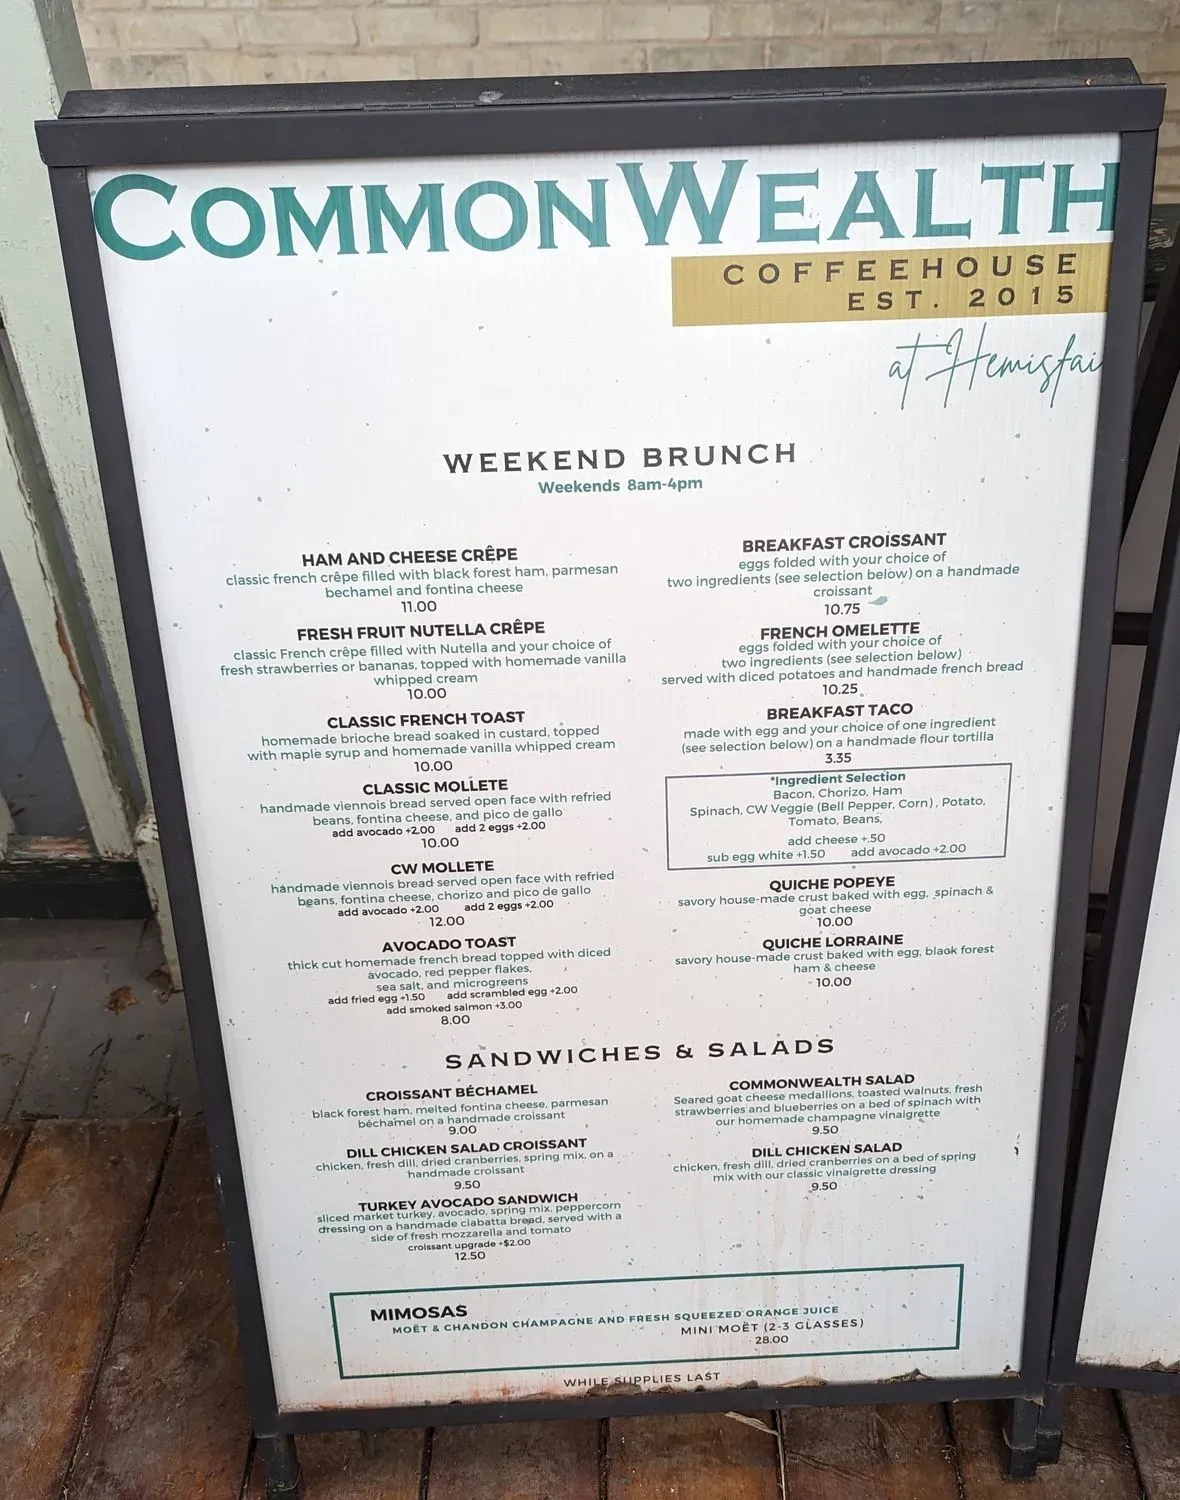 COMMONWEALTH
COFFEEHOUSE
EST. 2015
at Hemisfai
WEEKEND BRUNCH
Weekends 8am-4pm
HAM AND CHEESE CRÊPE
classic french crêpe filled with black forest ham, parmesan
bechamel and fontina cheese
11.00
FRESH FRUIT NUTELLA CRÊPE
classic French crêpe filled with Nutella and your choice of
fresh strawberries or bananas, topped with homemade vanilla
whipped cream
10.00
CLASSIC FRENCH TOAST
homemade brioche bread soaked in custard, topped
with maple syrup and homemade vanilla whipped cream
10.00
CLASSIC MOLLETE
handmade viennois bread served open face with refried
beans, fontina cheese, and pico de gallo
add avocado +2.00 add 2 eggs +2.00
10.00
CW MOLLETE
handmade viennois bread served open face with refried
beans, fontina cheese, chorizo and pico de gallo
add avocado +2.00 add 2 eggs +2.00
12.00
AVOCADO TOAST
thick cut homemade french bread topped with diced
avocado, red pepper flakes,
sea salt, and microgreens
add fried egg +1.50 add scrambled egg +2.00
add smoked salmon +3.00
8.00
BREAKFAST CROISSANT
eggs folded with your choice of
two ingredients (see selection below) on a handmade
croissant
10.75
FRENCH OMELETTE
eggs folded with your choice of
two ingredients (see selection below)
served with diced potatoes and handmade french bread
10.25
BREAKFAST TACO
made with egg and your choice of one ingredient
(see selection below) on a handmade flour tortilla
3.35
*Ingredient Selection
Bacon, Chorizo, Ham
Spinach, CW Veggie (Bell Pepper, Corn), Potato,
Tomato, Beans,
add cheese +.50
sub egg white +1.50 add avocado +2.00
QUICHE POPEYE
savory house-made crust baked with egg, spinach &
goat cheese
10.00
QUICHE LORRAINE
savory house-made crust baked with egg, black forest
ham & cheese
10.00
SANDWICHES & SALADS
CROISSANT BÉCHAMEL
black forest ham, melted fontina cheese, parmesan
béchamel on a handmade croissant
9.00
DILL CHICKEN SALAD CROISSANT
chicken, fresh dill, dried cranberries, spring mix, on a
handmade croissant
9.50
TURKEY AVOCADO SANDWICH
sliced market turkey, avocado, spring mix, peppercorn
dressing on a handmade ciabatta bread, served with a
side of fresh mozzarella and tomato
croissant upgrade +$2.00
12.50
COMMONWEALTH SALAD
Seared goat cheese medallions, toasted walnuts, fresh
strawberries and blueberries on a bed of spinach with
our homemade champagne vinaigrette
9.50
DILL CHICKEN SALAD
chicken, fresh dill, dried cranberries on a bed of spring
mix with our classic vinaigrette dressing
9.50
MIMOSAS
MOËT & CHANDON CHAMPAGNE AND FRESH SQUEEZED ORANGE JUICE
MINI MOËT (2-3 GLASSES)
28.00
WHILE SUPPLIES LAST